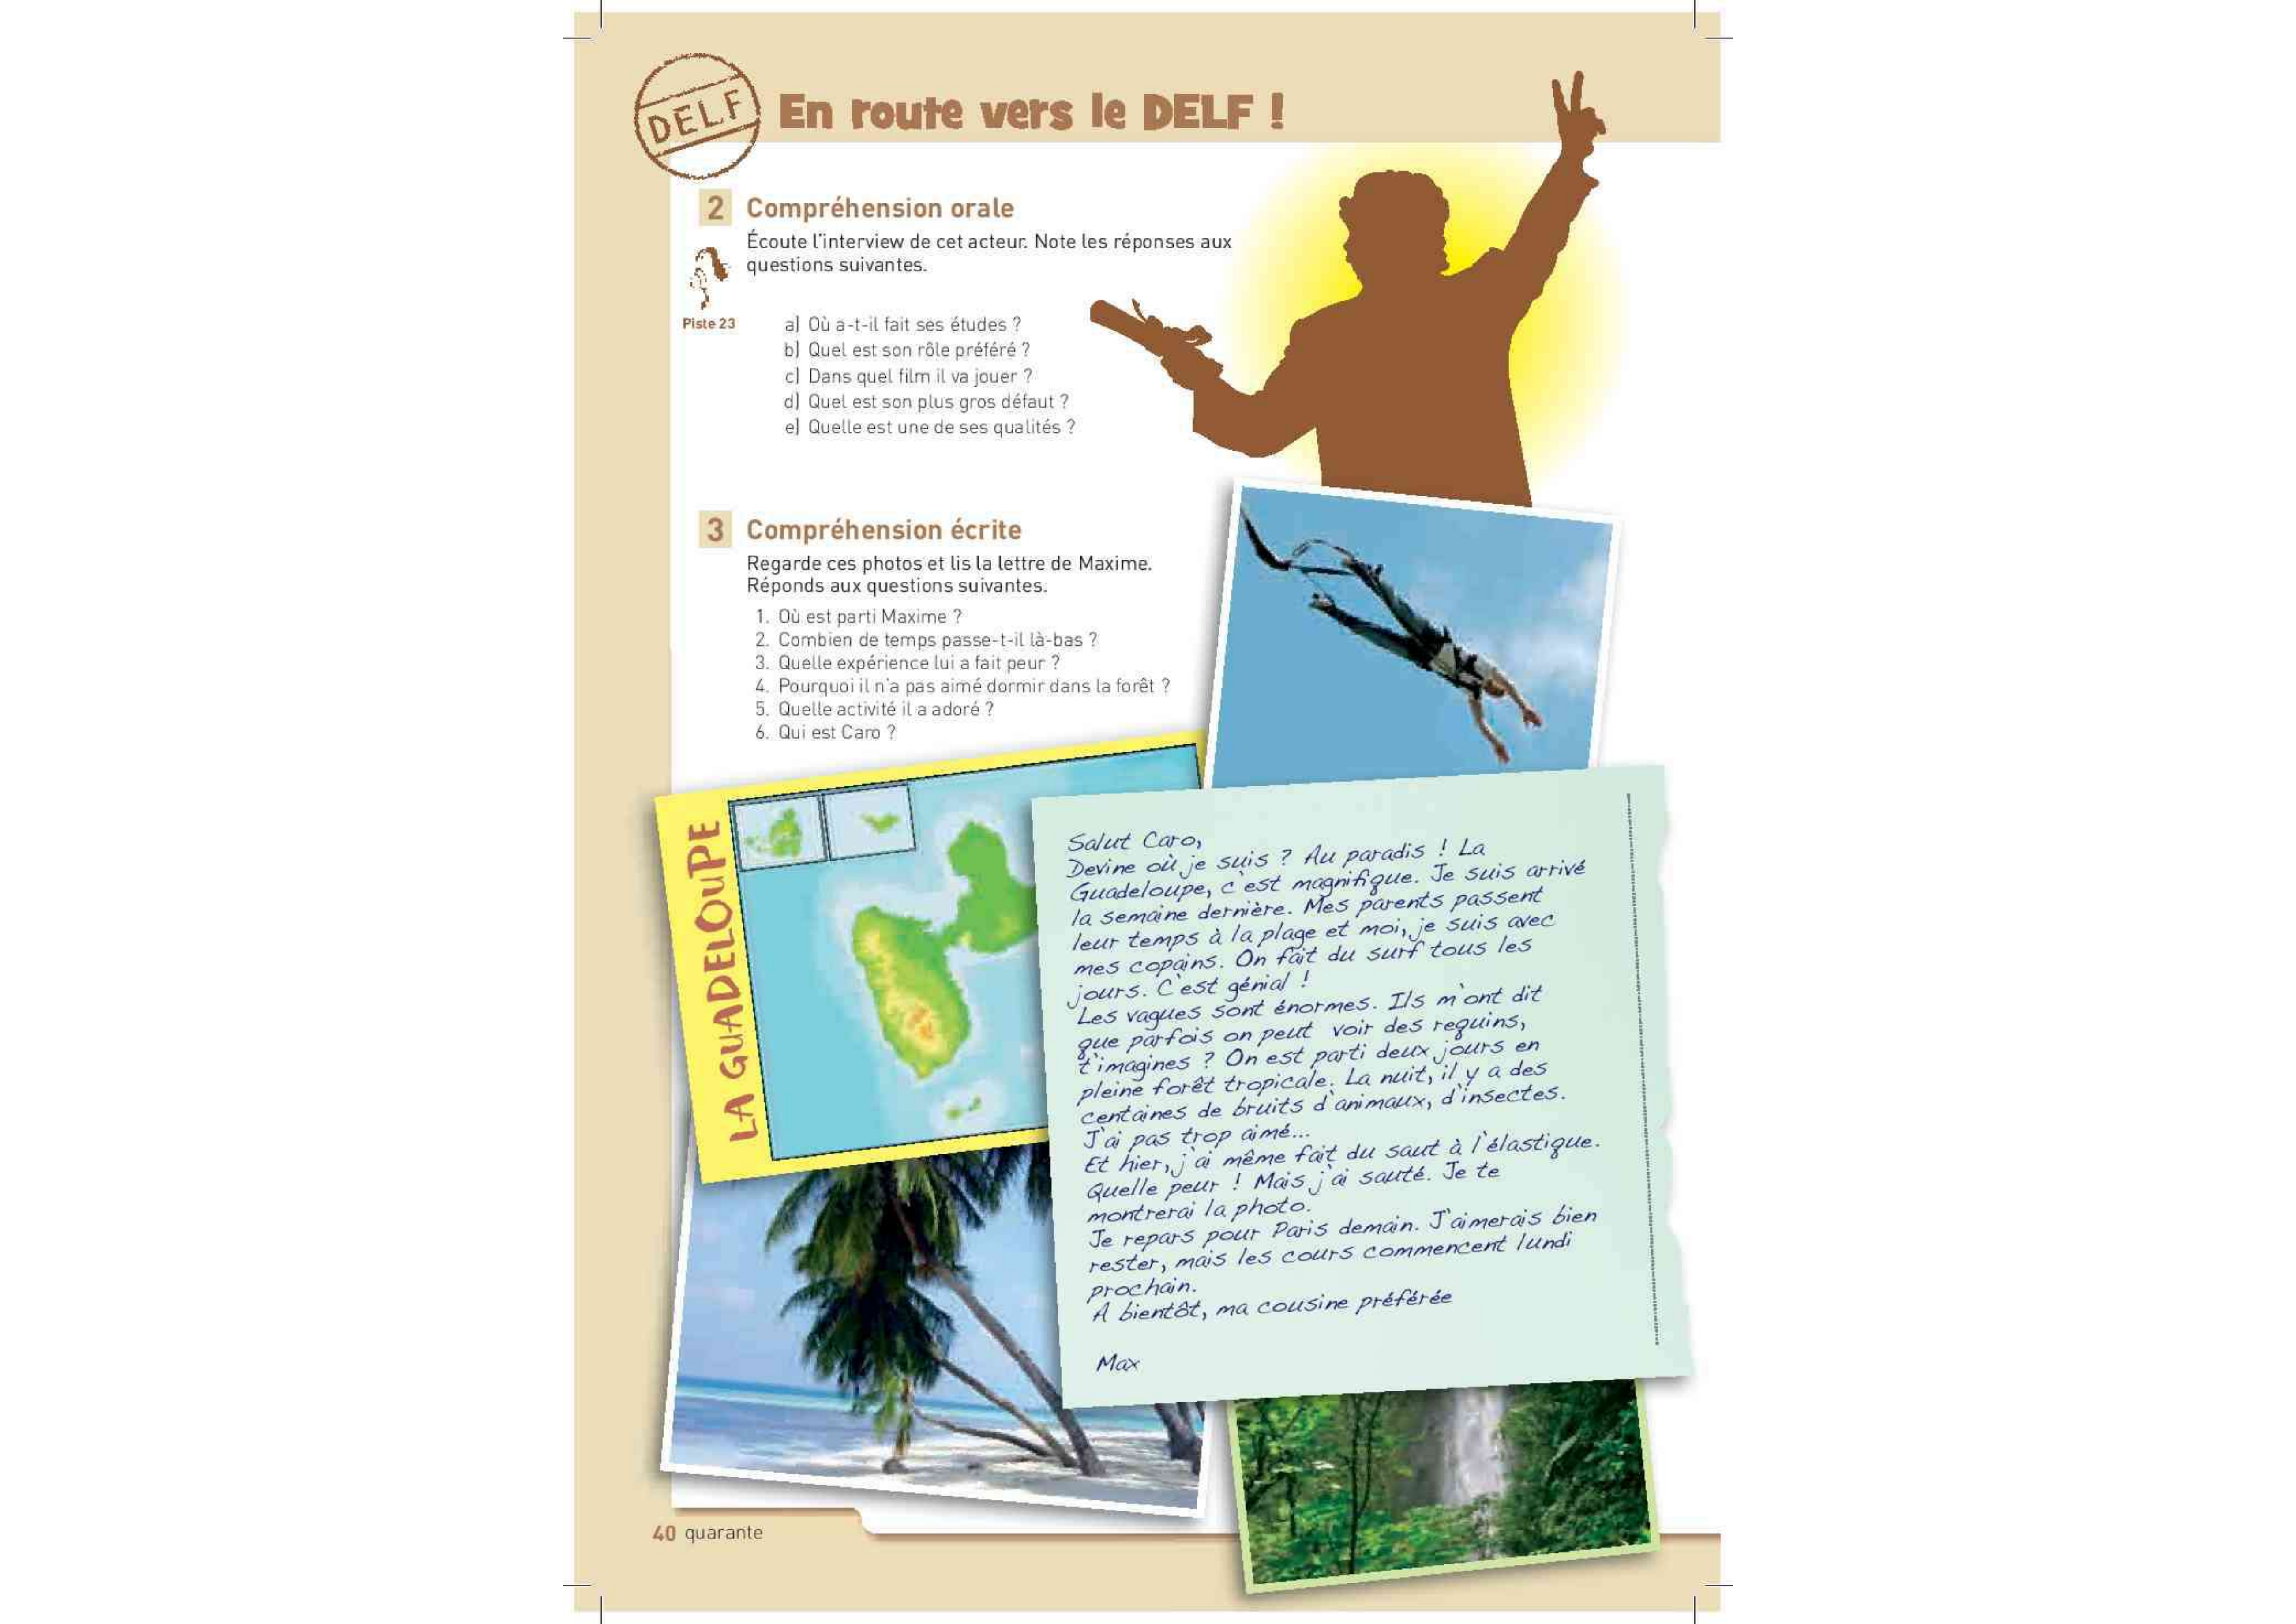 DELF
En route vers le DELF !
2 Compréhension orale
Écoute l'interview de cet acteur. Note les réponses aux
questions suivantes.
Piste 23
a) Où a-t-il fait ses études ?
b) Quel est son rôle préféré ?
c) Dans quel film il va jouer ?
d) Quel est son plus gros défaut ?
e) Quelle est une de ses qualités ?
3 Compréhension écrite
Regarde ces photos et lis la lettre de Maxime.
Réponds aux questions suivantes.
1. Où est parti Maxime ?
2. Combien de temps passe-t-il là-bas ?
3. Quelle expérience lui a fait peur ?
4. Pourquoi il n'a pas aimé dormir dans la forêt ?
5. Quelle activité il a adoré ?
6. Qui est Caro ?
LA GUADELOUPE
Salut Caro,
Devine où je suis ? Au paradis ! La
Guadeloupe, c'est magnifique. Je suis arrivé
la semaine dernière. Mes parents passent
leur temps à la plage et moi, je suis avec
mes copains. On fait du surf tous les
jours. C'est génial !
Les vagues sont énormes. Ils m'ont dit
que parfois on peut voir des requins,
t'imagines ? On est parti deux jours en
pleine forêt tropicale. La nuit, il y a des
centaines de bruits d'animaux, d'insectes.
J'ai pas trop aimé...
Et hier, j'ai même fait du saut à l'élastique.
Quelle peur ! Mais j'ai sauté. Je te
montrerai la photo.
Je repars pour Paris demain. J'aimerais bien
rester, mais les cours commencent lundi
prochain.
A bientôt, ma cousine préférée
Max
40 quarante